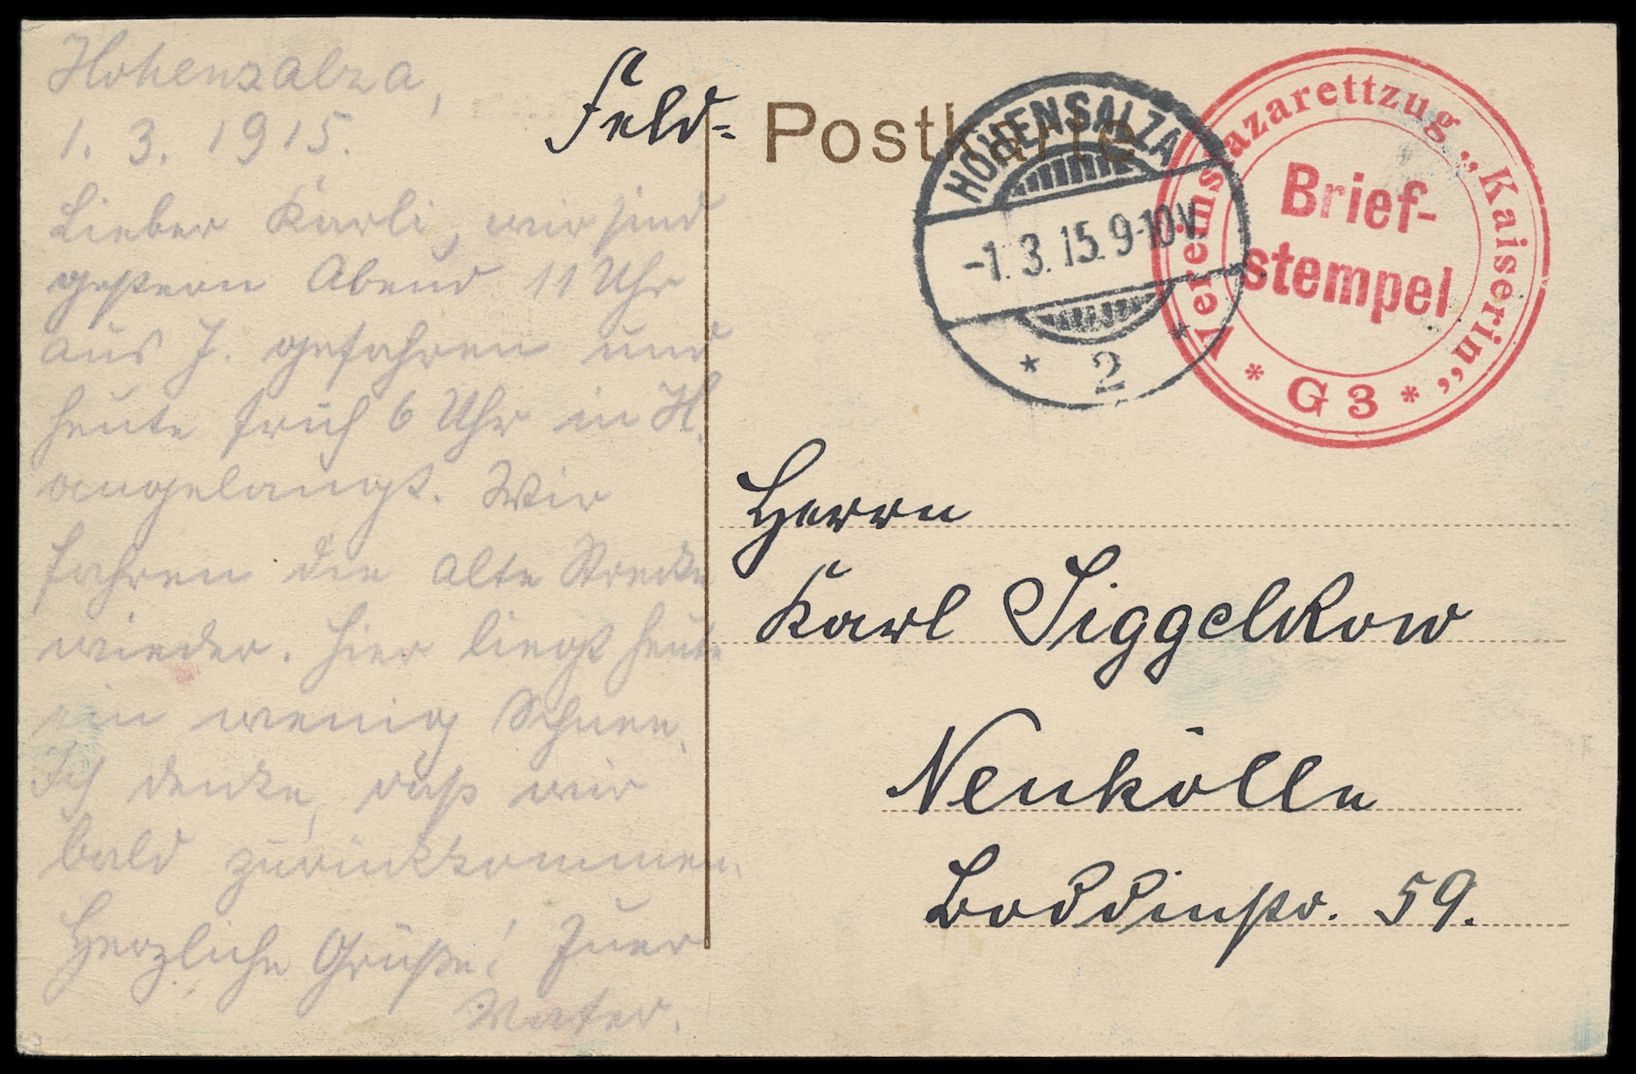 Hohensalza,
1. 3. 1915.
Lieber Karli, wir sind
gestern Abend 11 Uhr
aus J. gefahren und
heute früh 6 Uhr in H.
angelangt. Wir
fahren die alte Strecke
wieder. Hier liegt heute
ein wenig Schnee.
Ich denke, daß wir
bald zurückkommen.
Herzliche Grüße! Euer
Vater.
Feld-
Postkarte
HOHENSALZA
-1. 3. 15. 9-10V.
* 2 *
Vereinslazarettzug „Kaiserin“
Brief-
stempel
* G 3 *
Herrn
Karl Siggelkow
Neukölln
Boddinstr. 59.